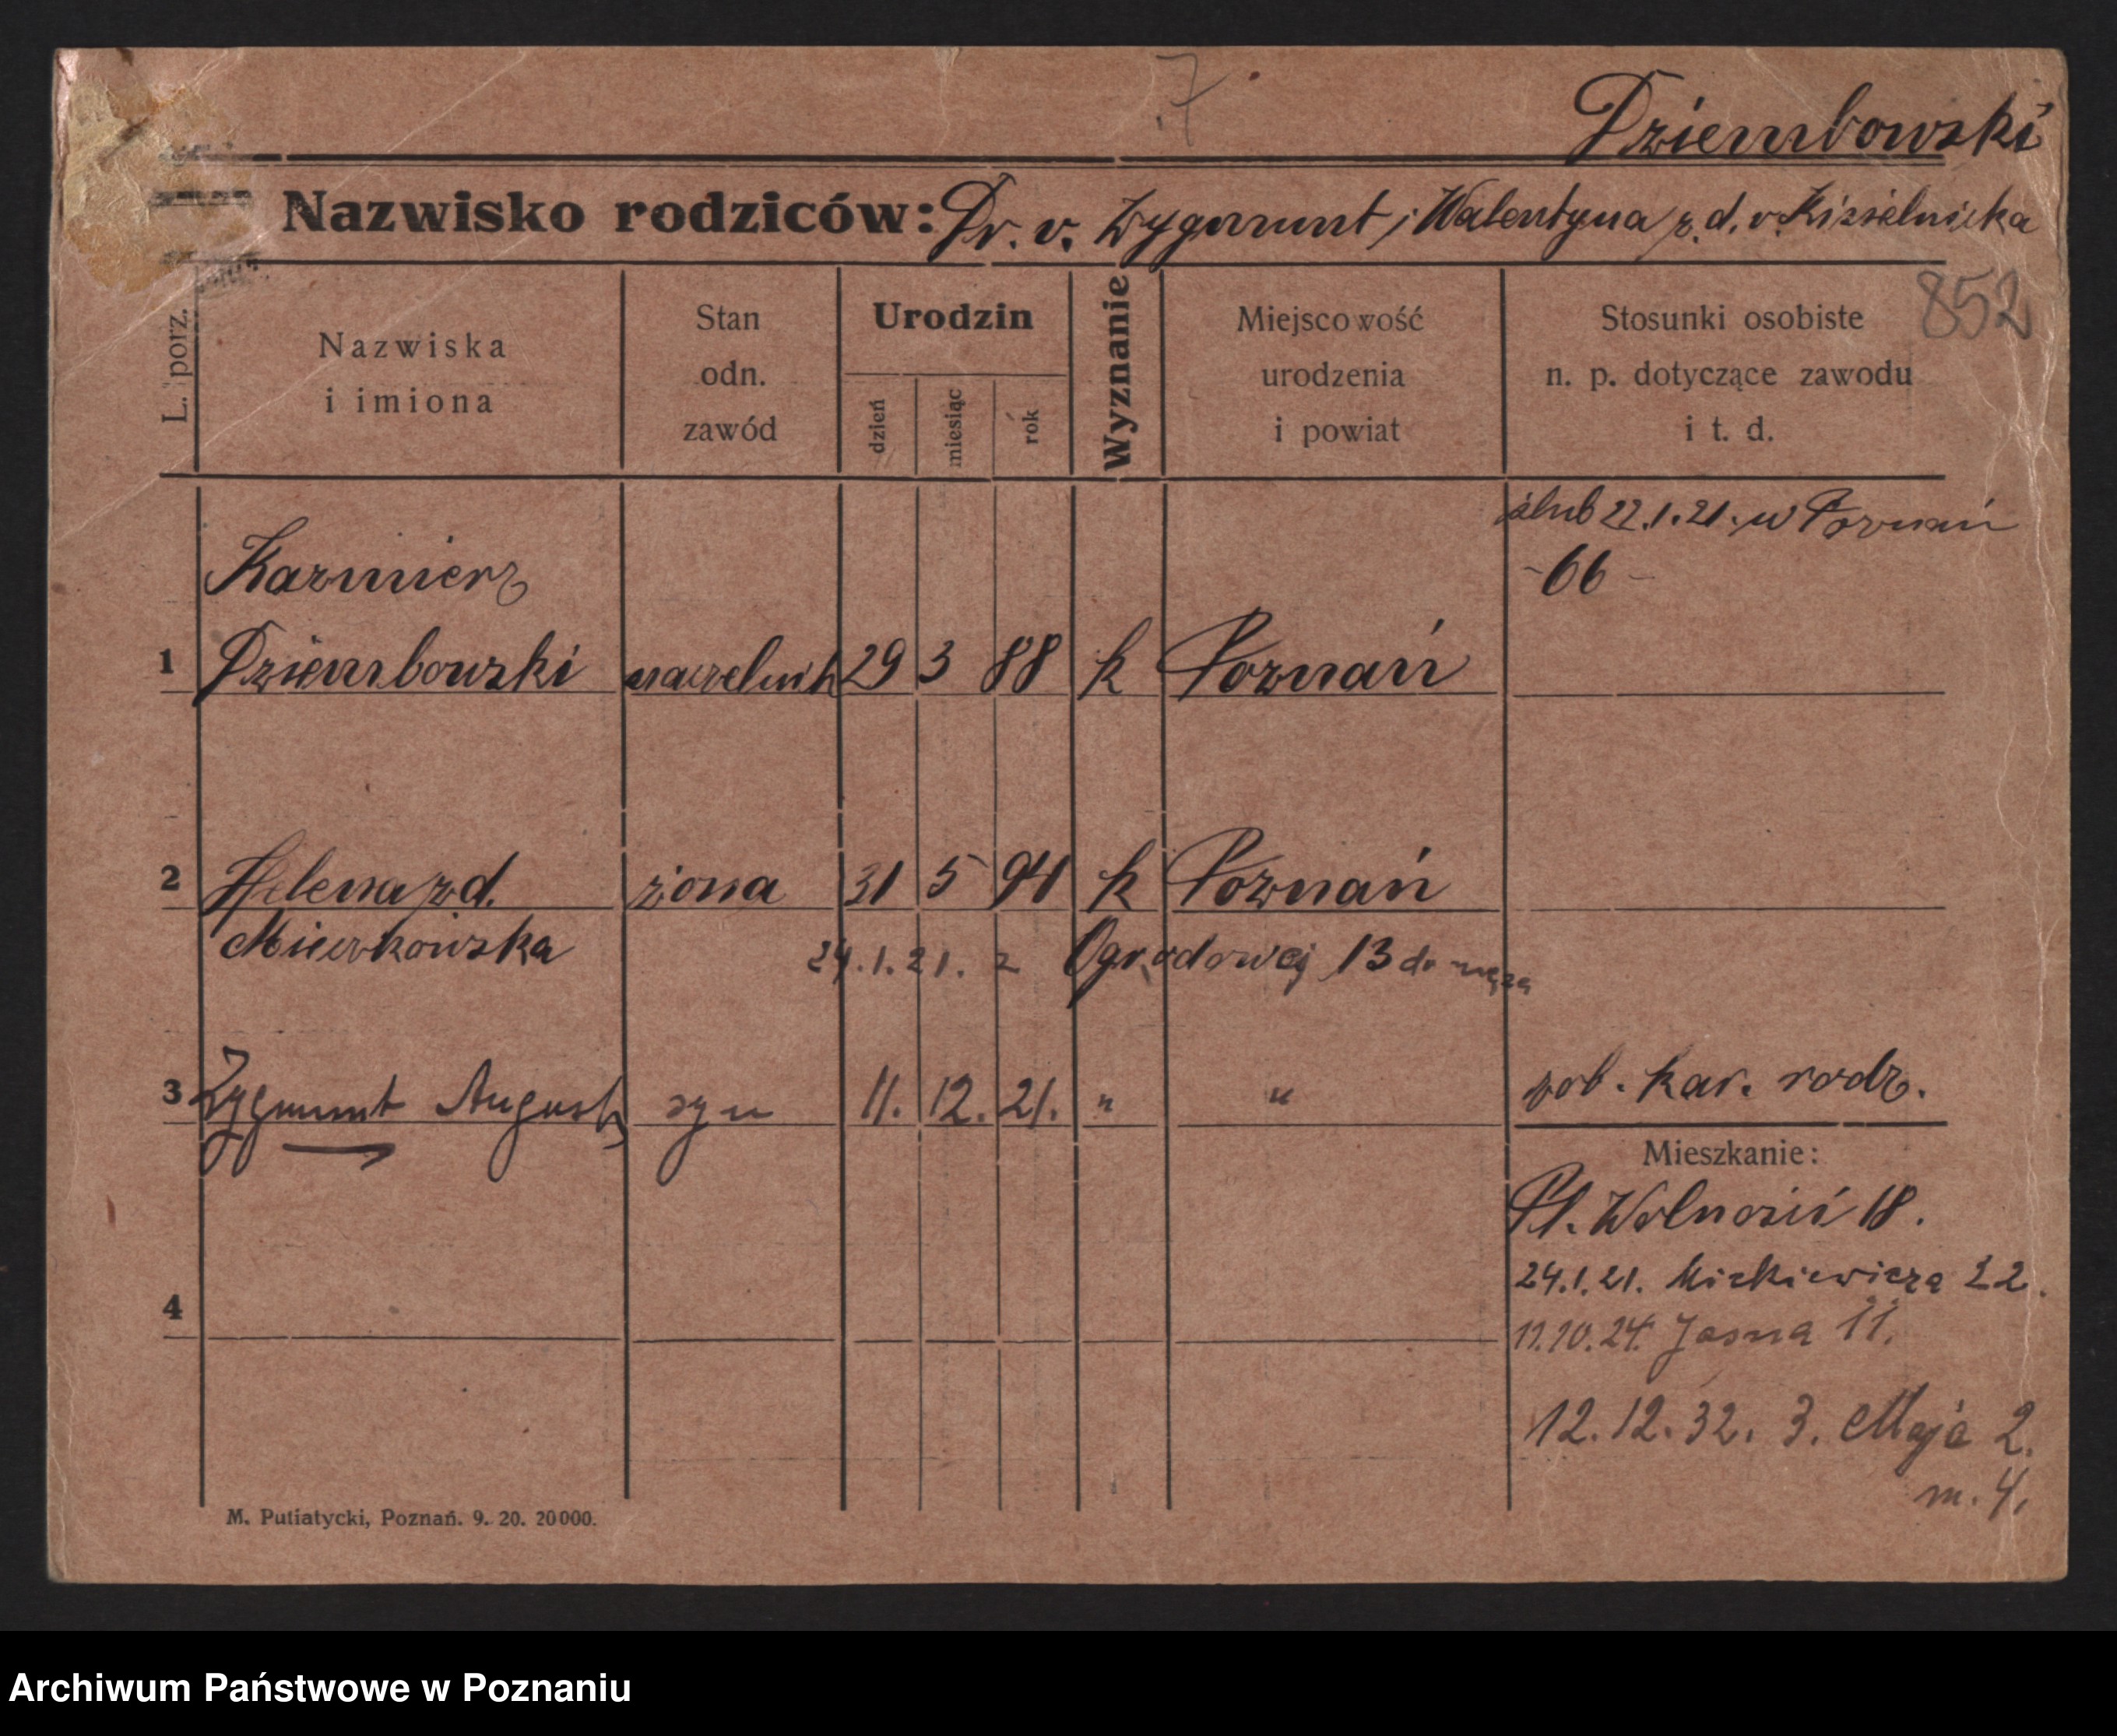 7.
Dziembowski
Nazwisko rodziców: Dr. v. Zygmunt i Walentyna z. d. v. Kisielnicka
852
L. porz.
Nazwiska
i imiona
Stan
odn.
zawód
Urodzin
dzień
miesiąc
rok
Wyznanie
Miejscowość
urodzenia
i powiat
Stosunki osobiste
n. p. dotyczące zawodu
i t. d.
ślub 22.1.21. w Poznań
-66-
Kazmierz
1 Dziembowski naczelnik 29 3 88 k Poznań
2 Helena zd. żona 31 5 94 k Poznań
24.1.21. z Ogrodowej 13 do męża
3 Zygmunt August syn 11. 12. 21. " "
zob. kar. rodz.
Mieszkanie:
Pl. Wolności 18.
24.1.21. Mickiewicza 22.
11.10.24. Jasna 11.
4
12.12.32. 3. Maja 2.
m. 4.
M. Putiatycki, Poznań. 9. 20. 20000.
Archiwum Państwowe w Poznaniu